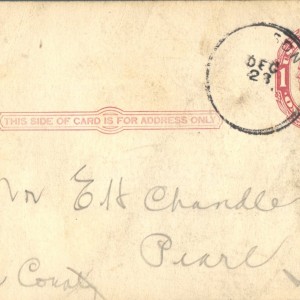 DEC
23
1
THIS SIDE OF CARD IS FOR ADDRESS ONLY
E H Chandle
Pearl
County